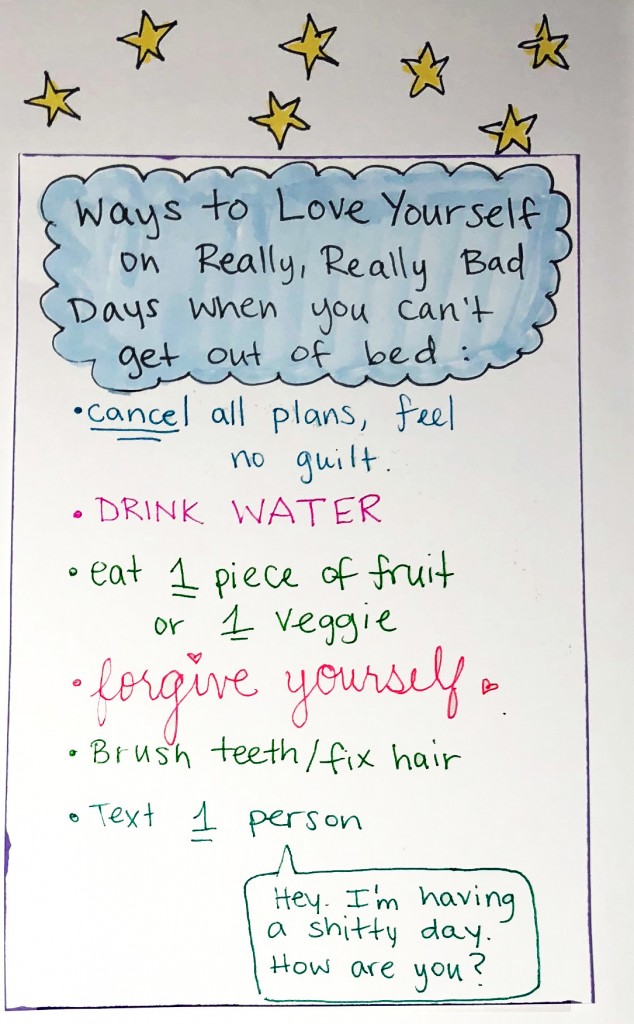 Ways to Love Yourself
on Really, Really Bad
Days when you can't
get out of bed :
• cancel all plans, feel
no guilt.
• DRINK WATER
• eat 1 piece of fruit
or 1 veggie
• forgive yourself
• Brush teeth/fix hair
• Text 1 person
Hey. I'm having
a shitty day.
How are you?